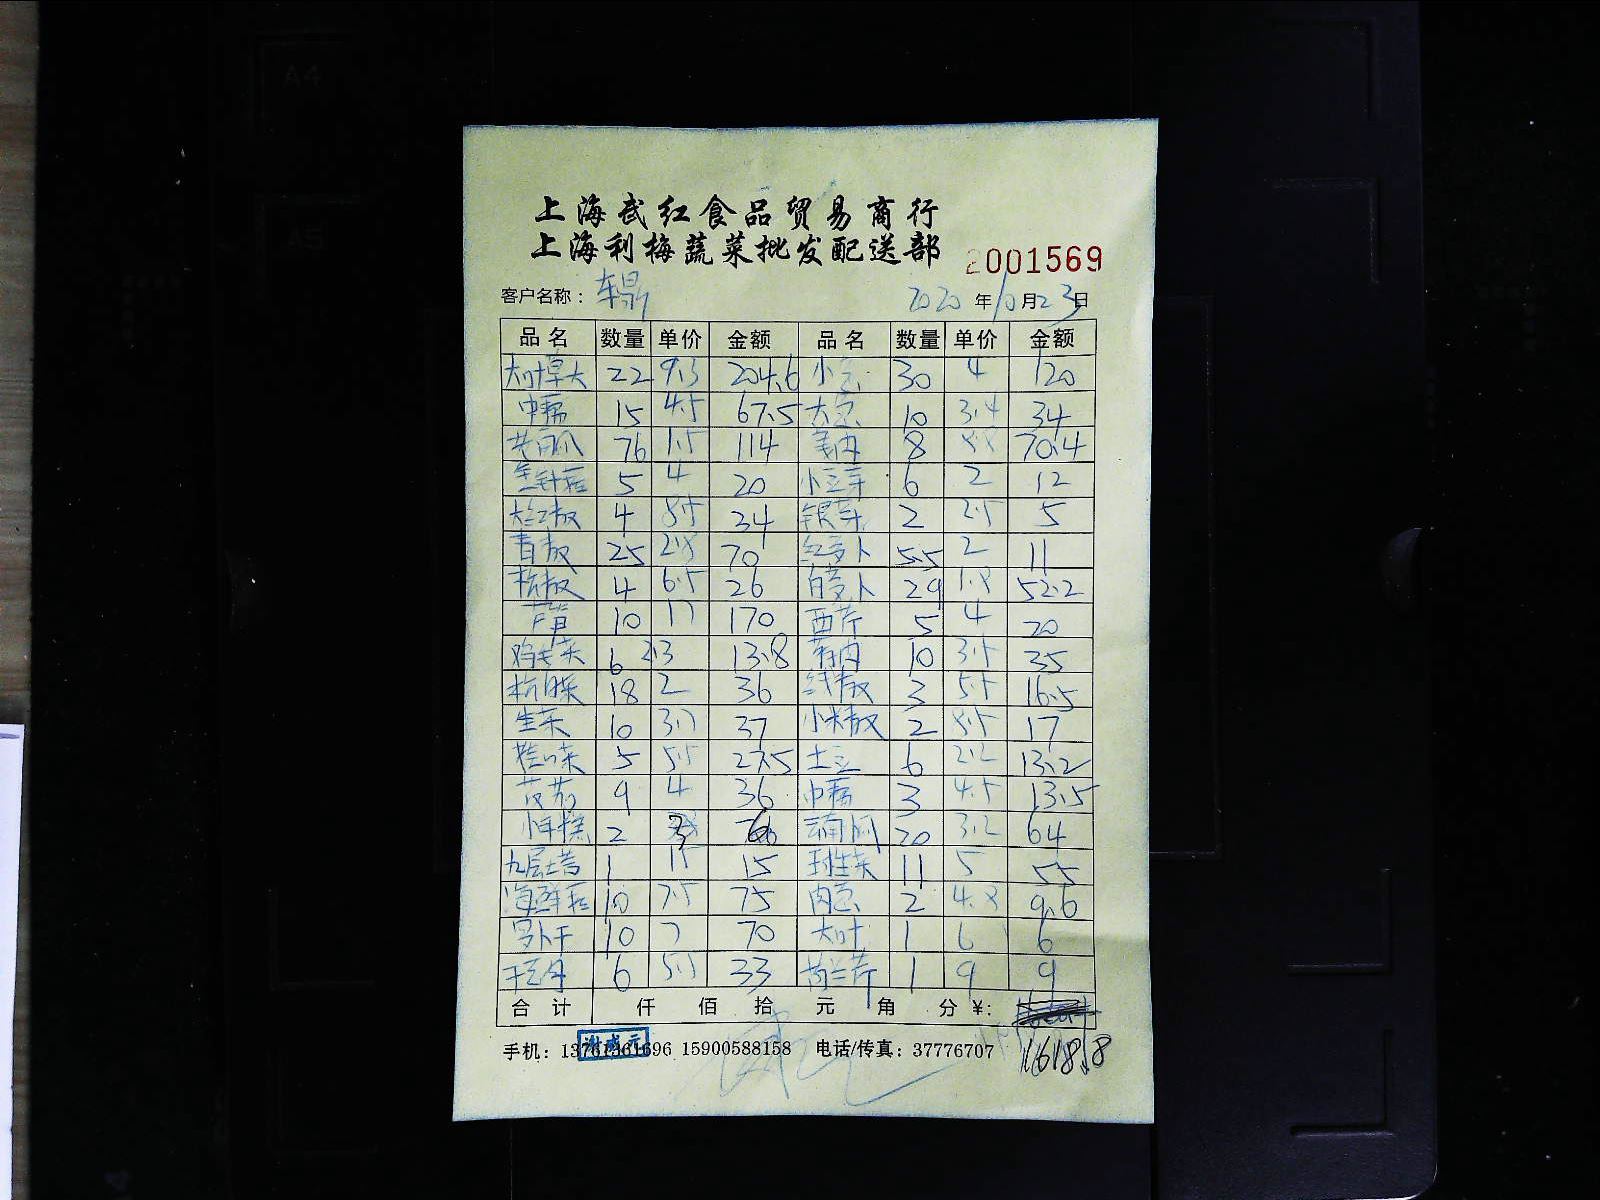 上海武红食品贸易商行
上海利梅蔬菜批发配送部
2001569
客户名称：
2020年10月23日
品名 数量 单价 金额 品名 数量 单价 金额
22 9.3 204.6 30 4 120
中藕 15 4.5 67.5 10 3.4 34
76 1.5 114 8 8.8 70.4
金针菇 5 4 20 小豆芽 6 2 12
大红椒 4 8.5 34 银芽 2 2.5 5
青椒 25 2.8 70 红萝卜 5.5 2 11
杭椒 4 6.5 26 白萝卜 29 1.8 52.2
芦笋 10 17 170 西芹 5 4 20
鸡毛菜 6 2.3 13.8 10 3.5 35
杭白菜 18 2 36 线椒 3 5.5 16.5
生菜 10 3.7 37 小米椒 2 8.5 17
5 5.5 27.5 土豆 6 2.2 13.2
茄 9 4 36 中藕 3 4.5 13.5
小年糕 2 3 6 云南瓜 20 3.2 64
九层塔 1 15 15 球生菜 11 5 55
海鲜菇 10 7.5 75 2 4.8 9.6
萝卜干 10 7 70 大叶 1 6 6
6 5.5 33 荷兰芹 1 9 9
合计 仟 佰 拾 元 角 分 ¥:
1618.8
手机：13761361696 15900588158 电话/传真：37776707
谢成元